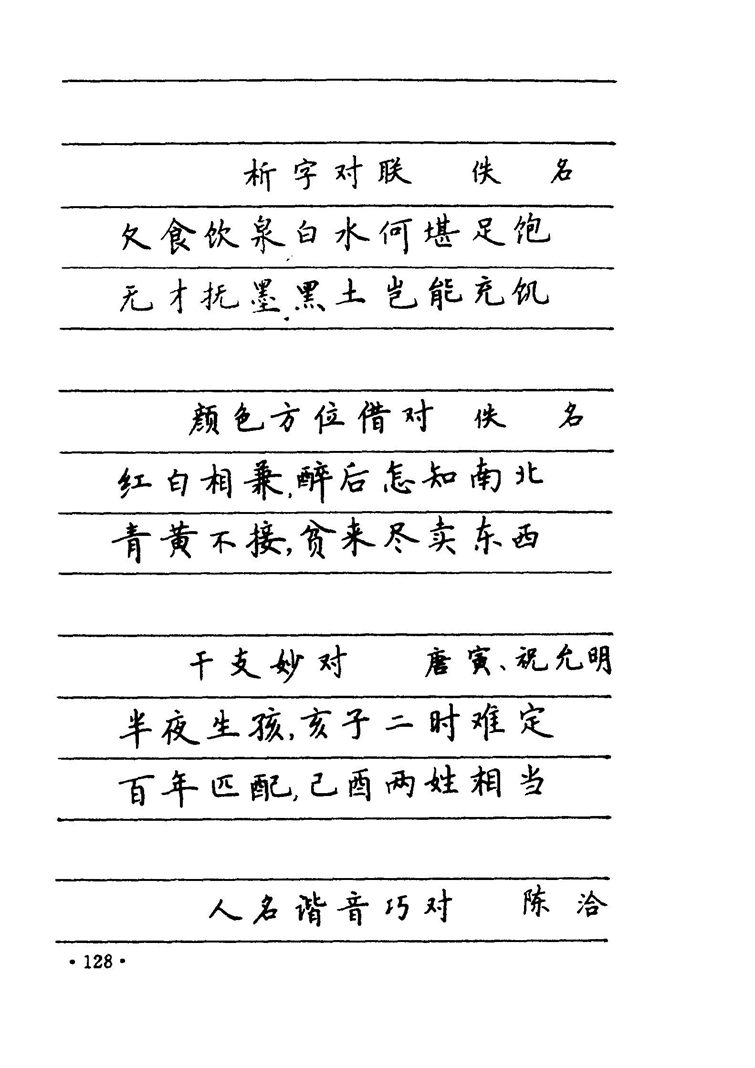 析字对联 佚 名
欠食饮泉白水何堪足饱
无才抚墨黑土岂能充饥
颜色方位借对 佚 名
红白相兼,醉后怎知南北
青黄不接,贫来尽卖东西
干支妙对 唐寅、祝允明
半夜生孩,亥子二时难定
百年匹配,己酉两姓相当
人名谐音巧对 陈洽
·128·